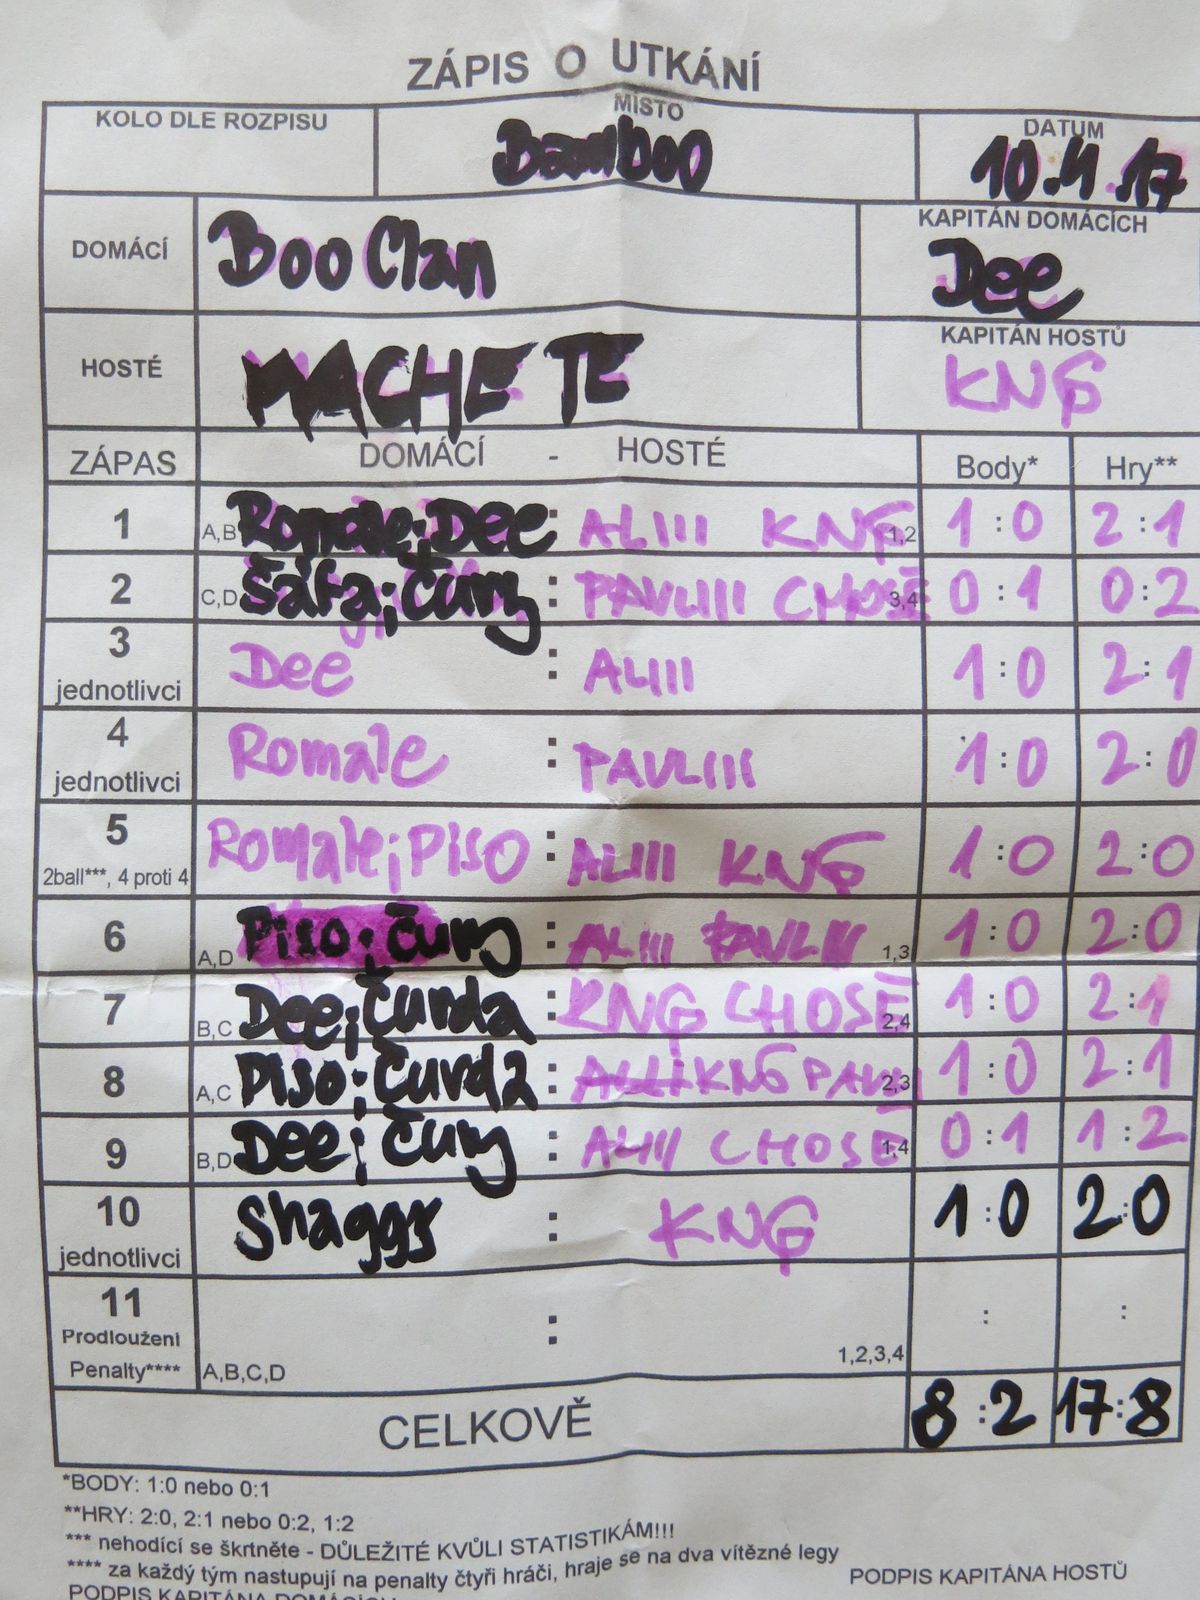 ZÁPIS O UTKÁNÍ
KOLO DLE ROZPISU MÍSTO DATUM
Bamboo 10.4.17
DOMÁCÍ Boo Clan KAPITÁN DOMÁCÍCH
Dee
HOSTÉ MACHETE KAPITÁN HOSTŮ
KNG
ZÁPAS DOMÁCÍ - HOSTÉ Body* Hry**
1 A,B Romale;Dee : ALIII KNG 1,2 1:0 2:1
2 C,D Šáfa;Čurg : PAVLIII CHOSÉ 3,4 0:1 0:2
3 Dee : ALIII 1:0 2:1
jednotlivci
4 Romale : PAVLIII 1:0 2:0
jednotlivci
5 Romale;Piso : ALIII KNG 1:0 2:0
2ball***, 4 proti 4
6 A,D Piso;Čurg : ALIII PAVLIII 1,3 1:0 2:0
7 B,C Dee;Čurda : KNG CHOSÉ 2,4 1:0 2:1
8 A,C Piso;Čurda : KNG PAVLI 2,3 1:0 2:1
9 B,D Dee;Čurg : ALIII CHOSÉ 1,4 0:1 1:2
10 Shaggy : KNG 1:0 2:0
jednotlivci
11 : : :
Prodloužení
Penalty**** A,B,C,D 1,2,3,4
CELKOVĚ 8:2 17:8
*BODY: 1:0 nebo 0:1
**HRY: 2:0, 2:1 nebo 0:2, 1:2
*** nehodící se škrtněte - DŮLEŽITÉ KVŮLI STATISTIKÁM!!!
**** za každý tým nastupují na penalty čtyři hráči, hraje se na dva vítězné legy
PODPIS KAPITÁNA DOMÁCÍCH PODPIS KAPITÁNA HOSTŮ